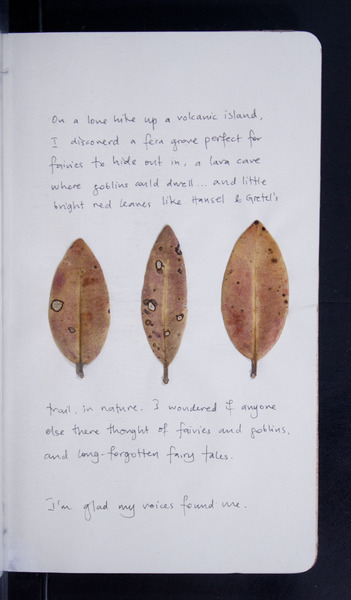 On a lone hike up a volcanic island,
I discovered a fern grove perfect for
fairies to hide out in, a lava cave
where goblins could dwell... and little
bright red leaves like Hansel & Gretel's
trail, in nature. I wondered if anyone
else there thought of fairies and goblins,
and long-forgotten fairy tales.
I'm glad my voices found me.